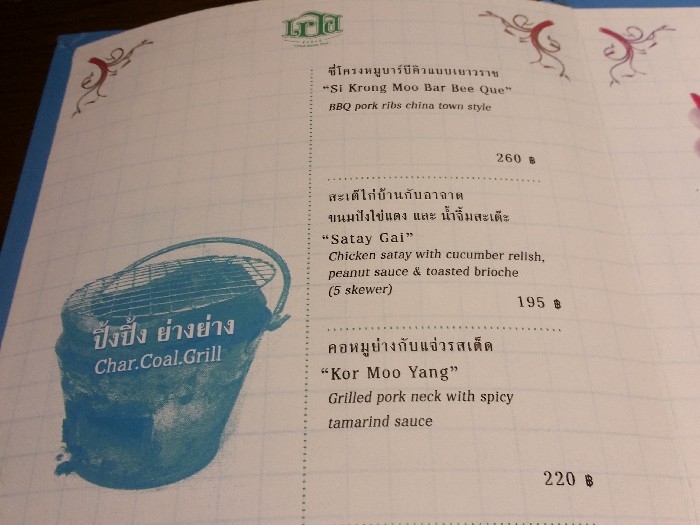 ซี่โครงหมูบาร์บีคิวแบบเยาวราช
“Si Krong Moo Bar Bee Que”
BBQ pork ribs china town style
260 ฿
สะเต๊ไก่บ้านกับอาจาด
ขนมปังไข่แดง และ น้ำจิ้มสะเต๊ะ
“Satay Gai”
Chicken satay with cucumber relish,
peanut sauce & toasted brioche
(5 skewer)
195 ฿
คอหมูย่างกับแจ่วรสเด็ด
“Kor Moo Yang”
Grilled pork neck with spicy
tamarind sauce
220 ฿
ปิ้งปิ้ง ย่างย่าง
Char.Coal.Grill